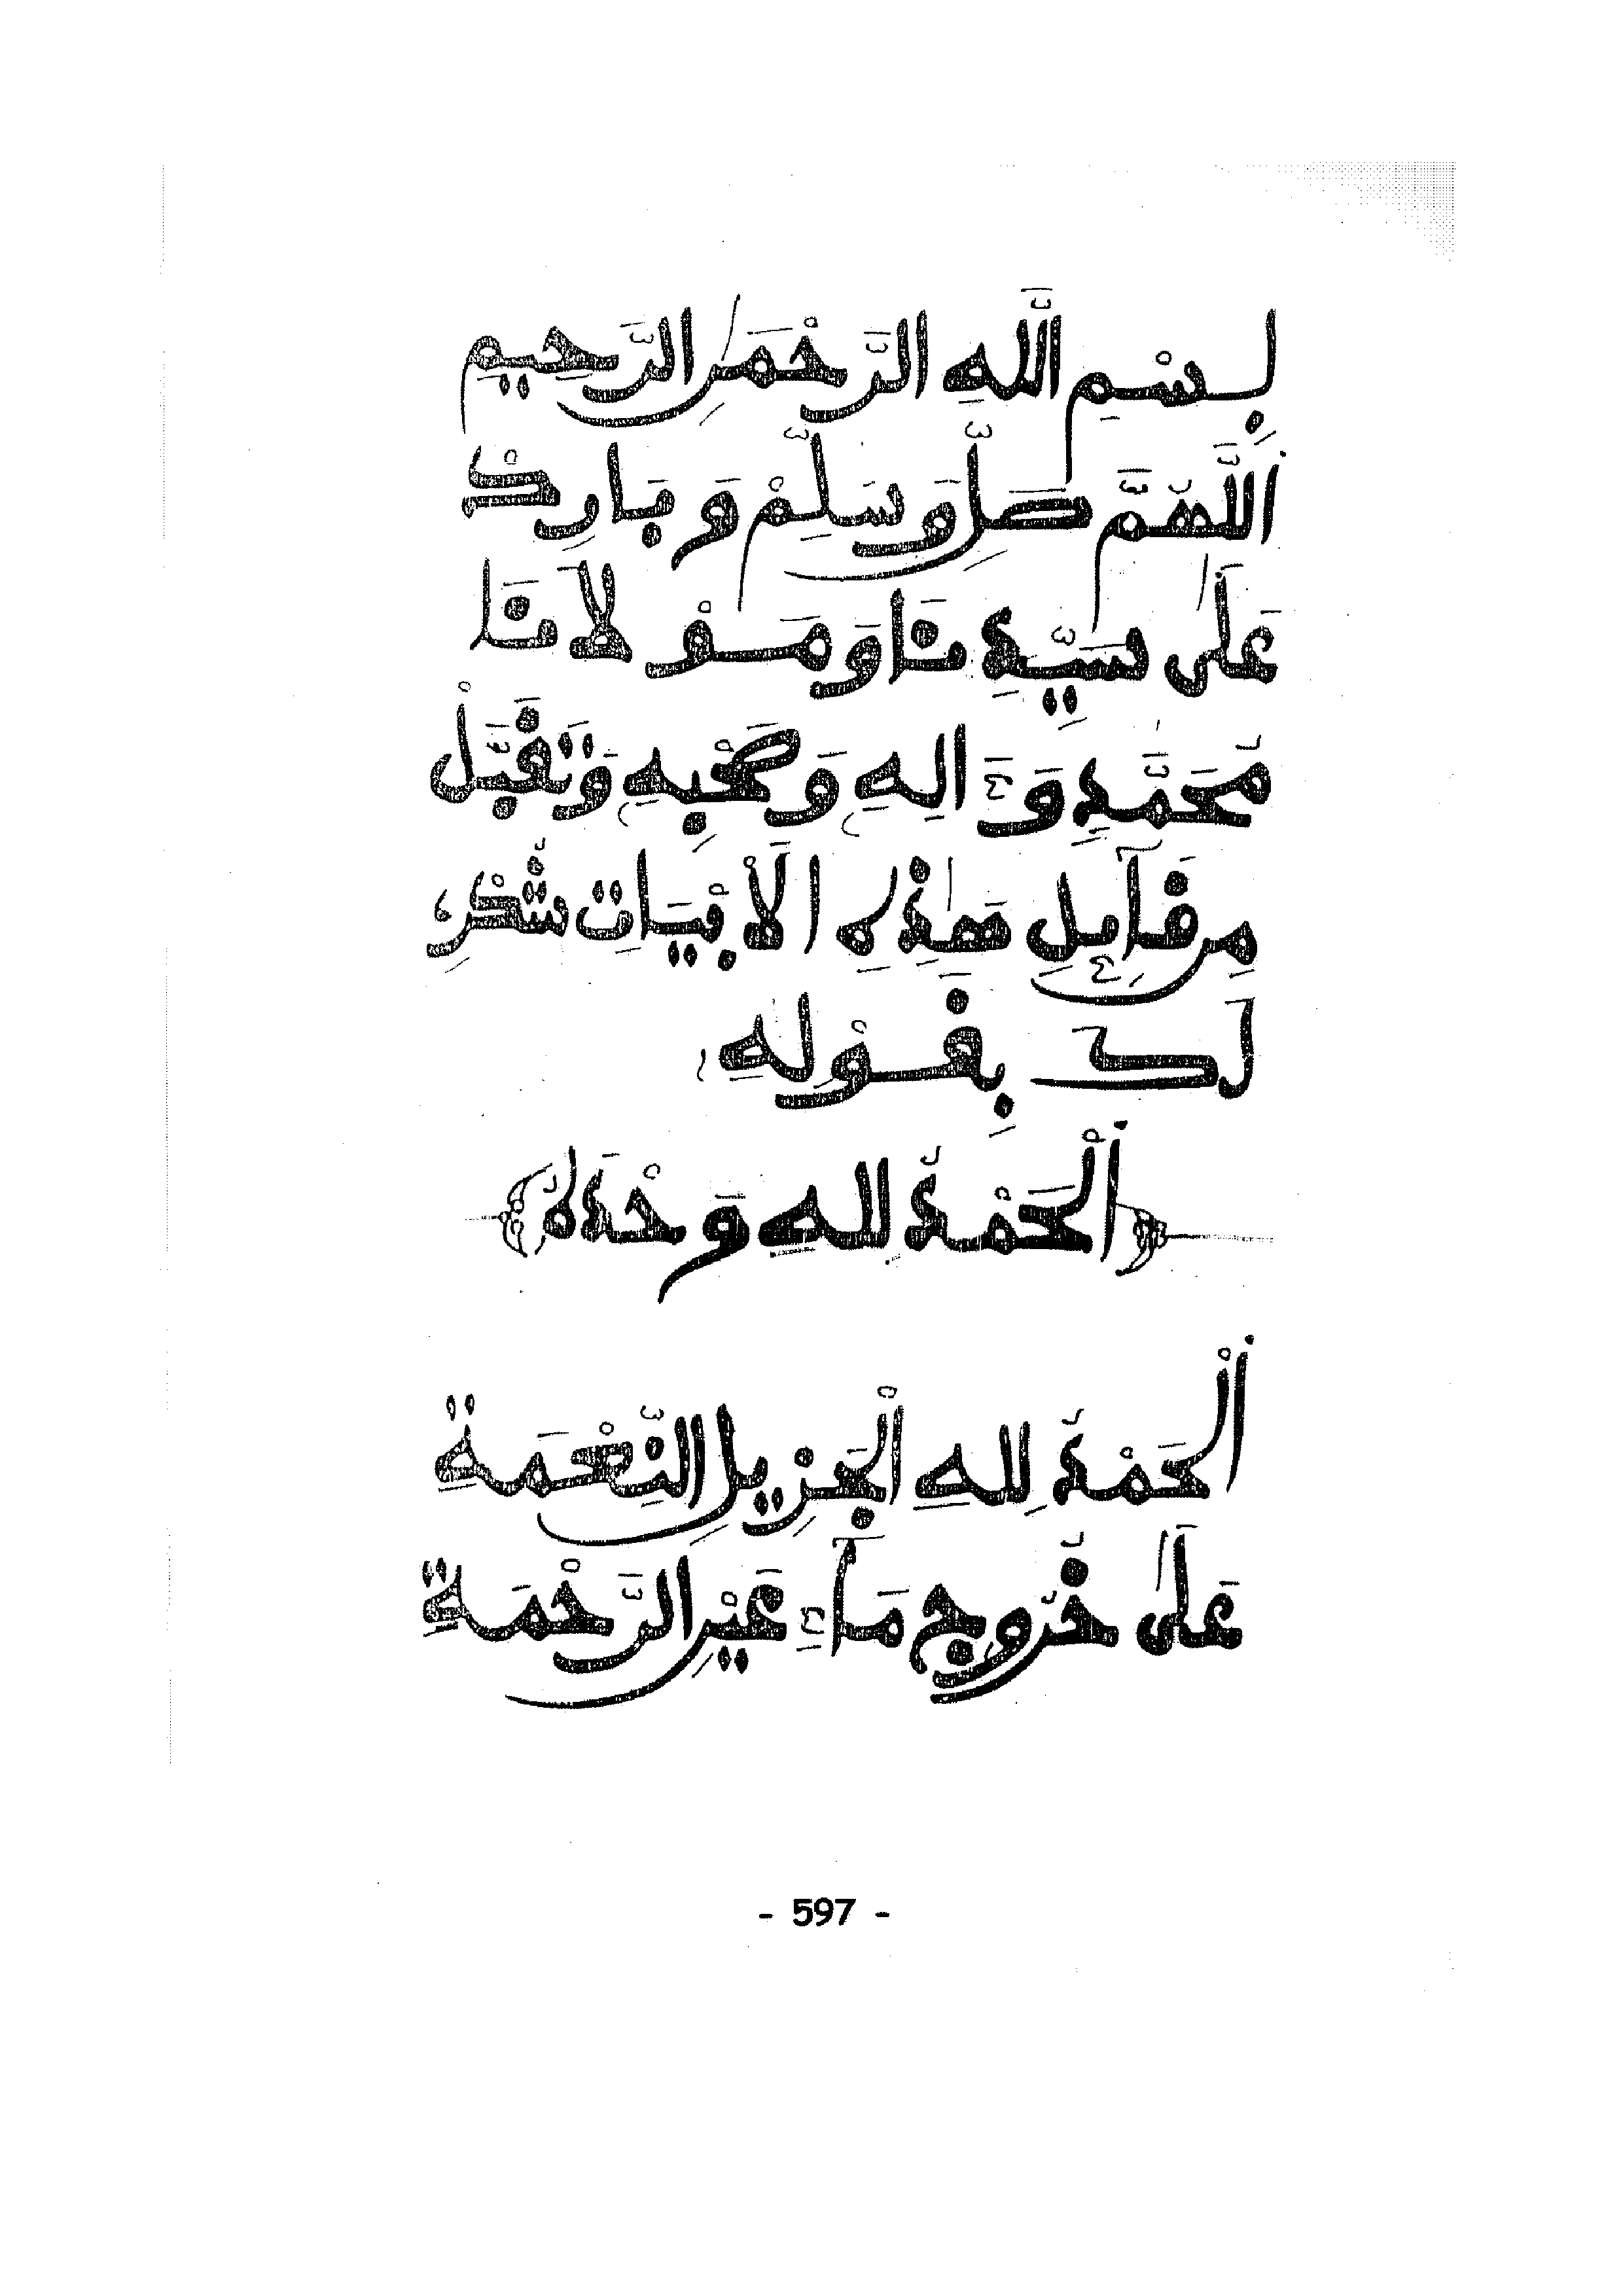 بِسْمِ اللَّهِ الرَّحْمَنِ الرَّحِيمِ
اَللَّهُمَّ صَلِّ وَسَلِّمْ وَبَارِكْ
عَلَى سَيِّدِنَا وَمَوْلَانَا
مُحَمَّدٍ وَءَالِهِ وَصَحْبِهِ وَتَقَبَّلْ
مِن قَآئِلِ هَذِهِ الْأَبْيَاتِ شُكْرِ
لَكَ بِقَوْلِهِ
اَلْحَمْدُ لِلهِ وَحْدَهُ
اَلْحَمْدُ لِلهِ الْجَزِيلِ النِّعْمَةِ
عَلَى خُرُوجِ مَآءِ غَيْرِ الرَّحْمَةِ
- 597 -